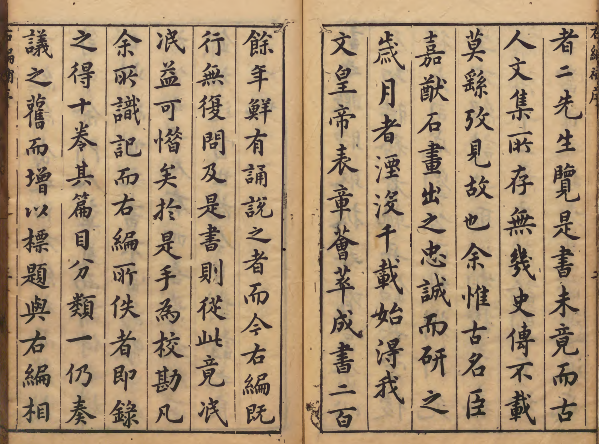 者二先生覽是書未竟而古
人文集所存無幾史傳不載
莫繇攷見故也余惟古名臣
嘉猷石畫出之忠誠而研之
歲月者湮沒千載始得我
文皇帝表章薈萃成書二百
餘年鮮有誦說之者而今右編既
行無復問及是書則從此竟泯
泯益可惜矣於是手為校勘凡
余所識記而右編所佚者即錄
之得十卷其篇目分類一仍奏
議之舊而增以標題與右編相